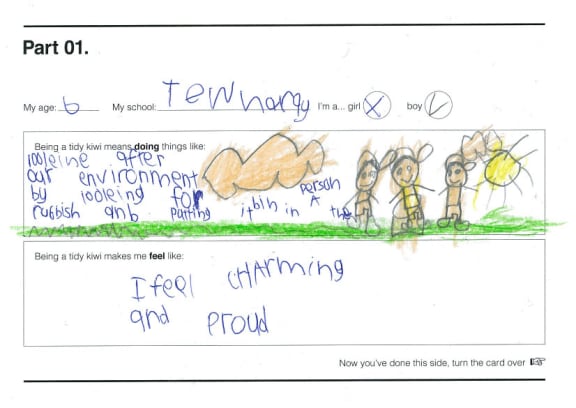 Part 01.
My age: 6 My school: Tewharau I'm a... girl X boy ✓
Being a tidy kiwi means doing things like:
looleine after
our environment
by looleing for person
rubbish anb putting it bin in A the
Being a tidy kiwi makes me feel like:
I feel cHArming
and proud
Now you've done this side, turn the card over